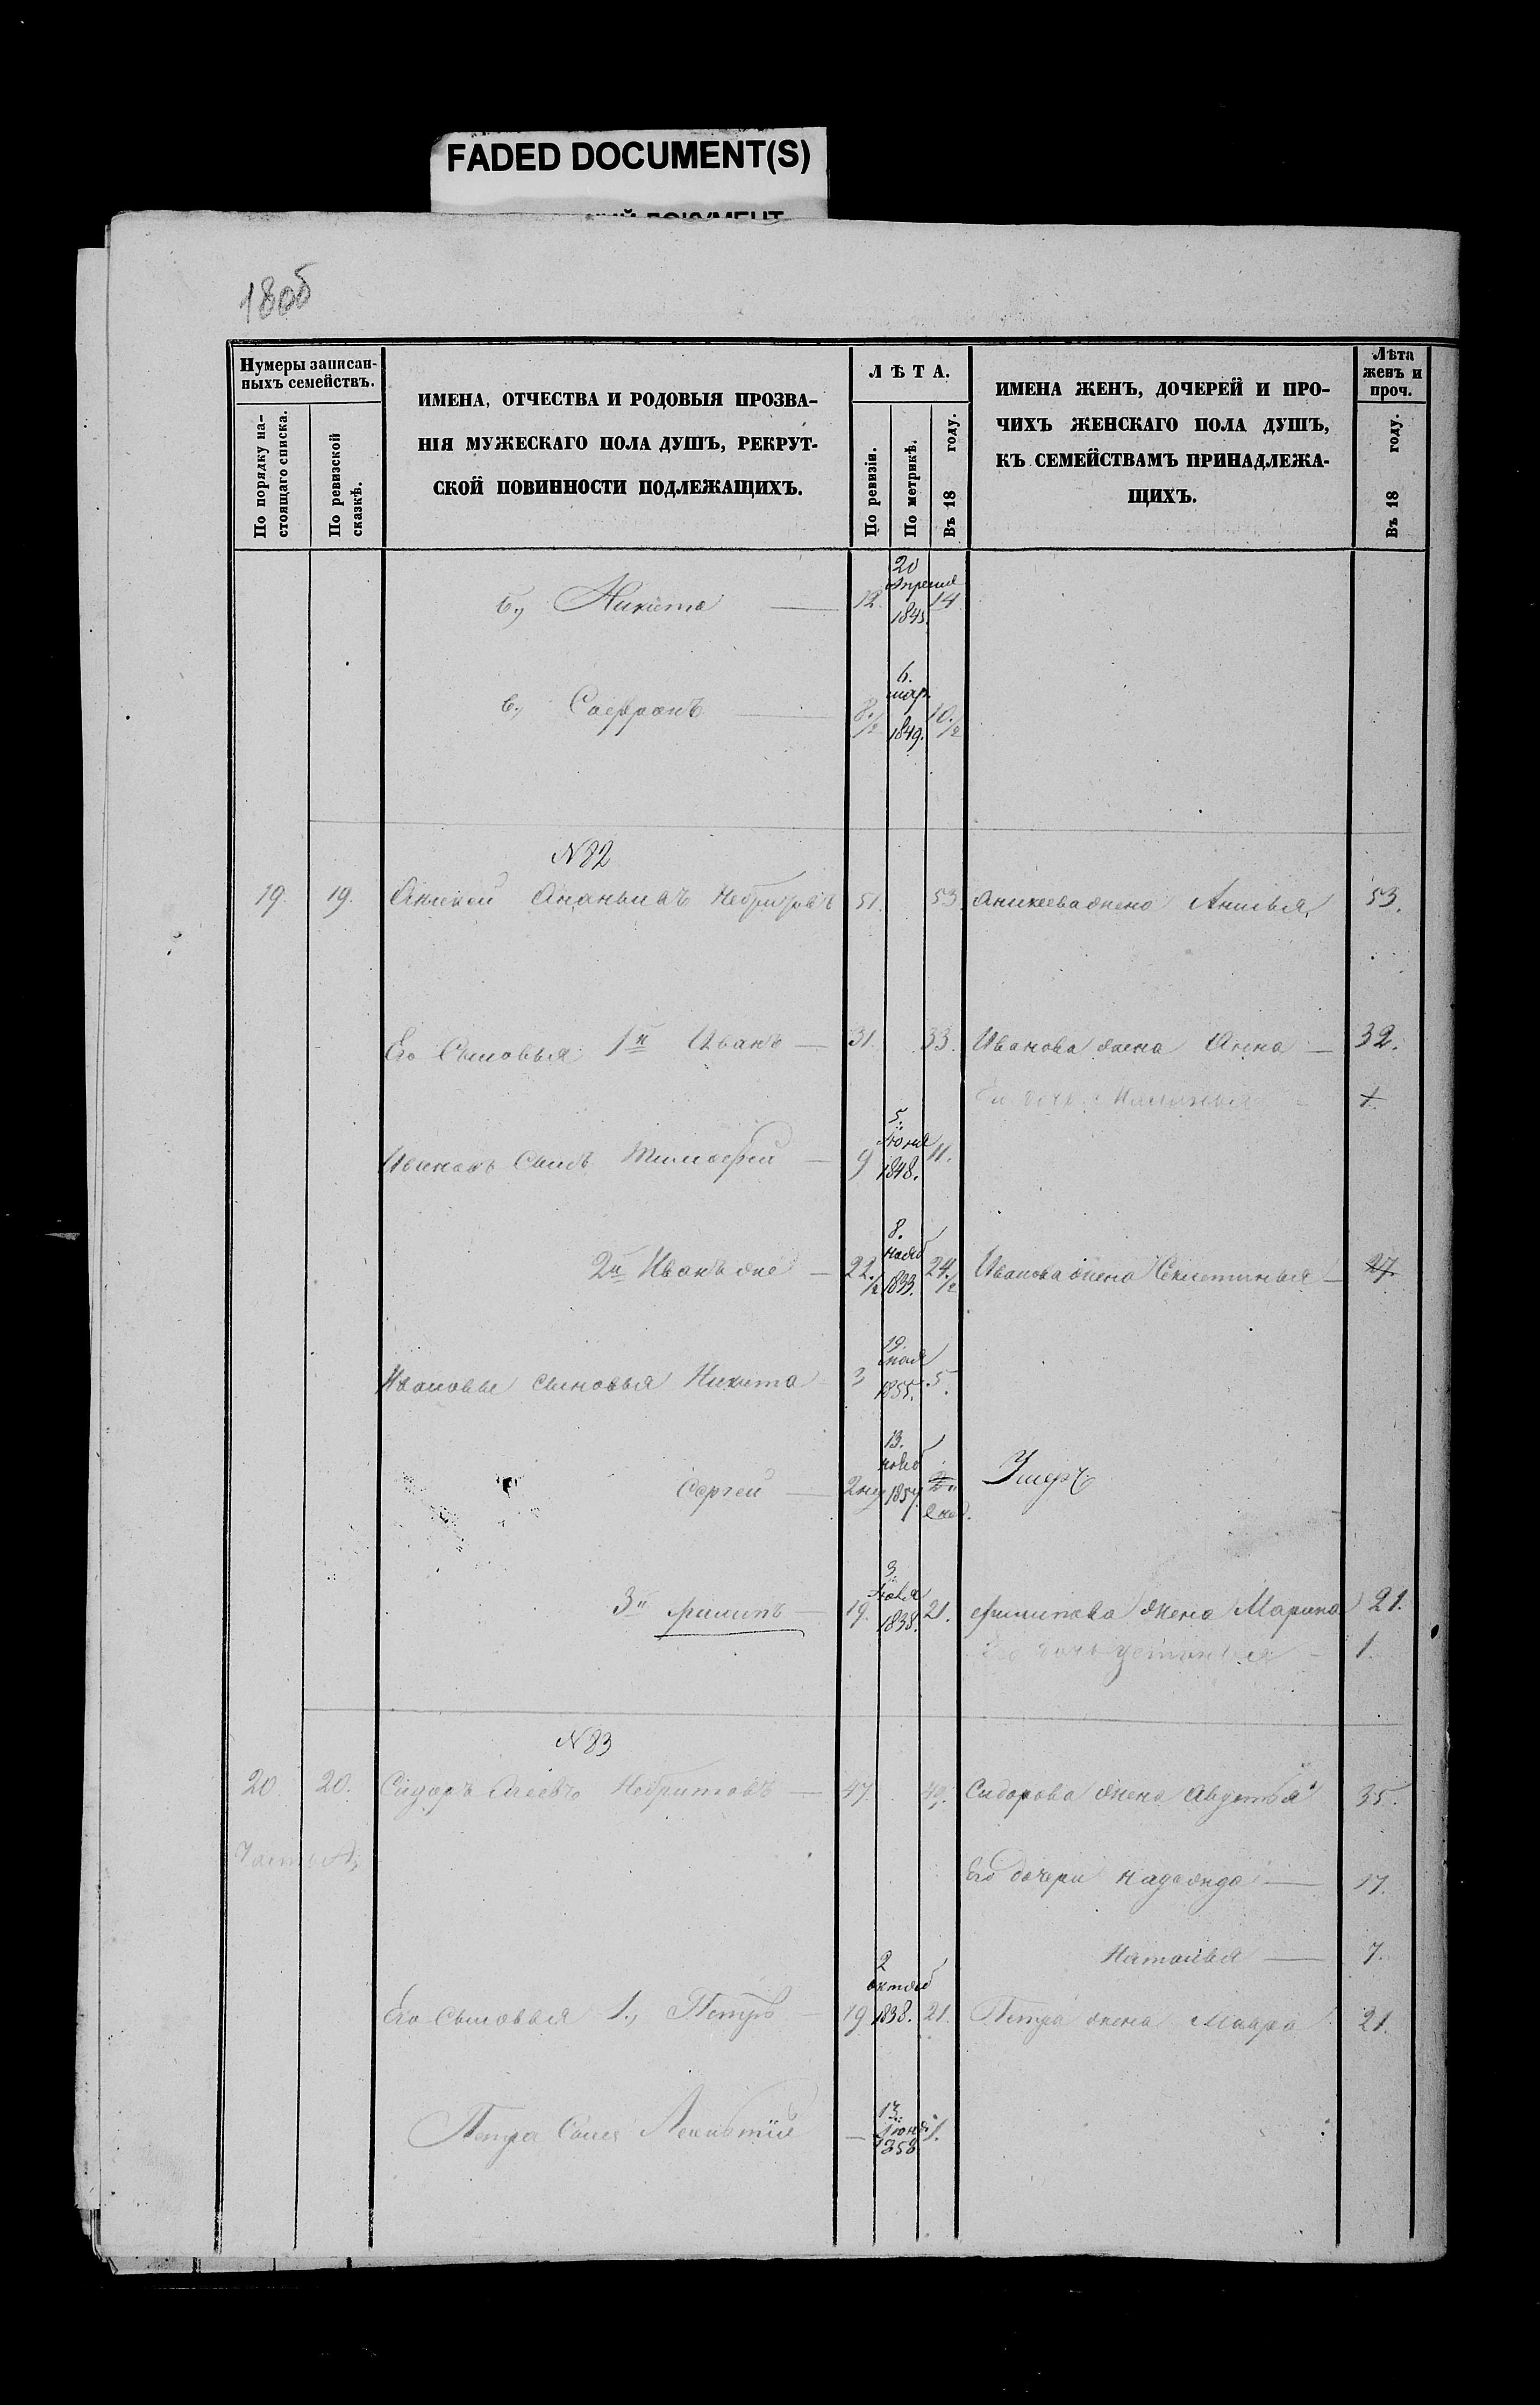 FADED DOCUMENT(S)
180об
Нумеры записан-
ныхъ семействъ.
По порядку на-
стоящаго списка.
По ревизской
сказкѣ.
ИМЕНА, ОТЧЕСТВА И РОДОВЫЯ ПРОЗВА-
НІЯ МУЖЕСКАГО ПОЛА ДУШЪ, РЕКРУТ-
СКОЙ ПОВИННОСТИ ПОДЛЕЖАЩИХЪ.
ЛѢТА.
По ревизіи.
По метрикѣ.
Въ 18 году.
ИМЕНА ЖЕНЪ, ДОЧЕРЕЙ И ПРО-
ЧИХЪ ЖЕНСКАГО ПОЛА ДУШЪ,
КЪ СЕМЕЙСТВАМЪ ПРИНАДЛЕЖА-
ЩИХЪ.
Лѣта
женъ и
проч.
Въ 18 году.
б., Никита — 12. 20 Апреля 1845. 14
в., Сафронъ — 8.½ 6. мар. 1849. 10.½
N 82
19. 19. Аникей Ананьивъ 51. 53. Аникеева жена Анисья 53.
Его Сыновья 1й Иванъ — 31. 33. Ивановa жена Анна — 32.
Ивановъ Сынъ Тимофей — 9 5. Июня 1848. 11.
2й Иванъ же — 22.½ 8. нояб 1833. 24.½ Иванова жена — 27.
Ивановы сыновья Никита 3 19 мая 1855. 5.
Сергей — 13. нояб 1857 Умеръ
3й Филипъ — 19. 3. 1838. 21. Филипова жена Марина 21.
дочь Устинья — 1.
N 83
20. 20. Сидоръ — 47. 49. Сидорова жена Авдотья 35.
Его дочери Надежда — 17.
Наталья — 7.
Его сыновья 1., Петръ — 19 2 октяб 1838. 21. Петра жена Мавра 21.
Петра Сынъ — 13. Июня 1858 1.